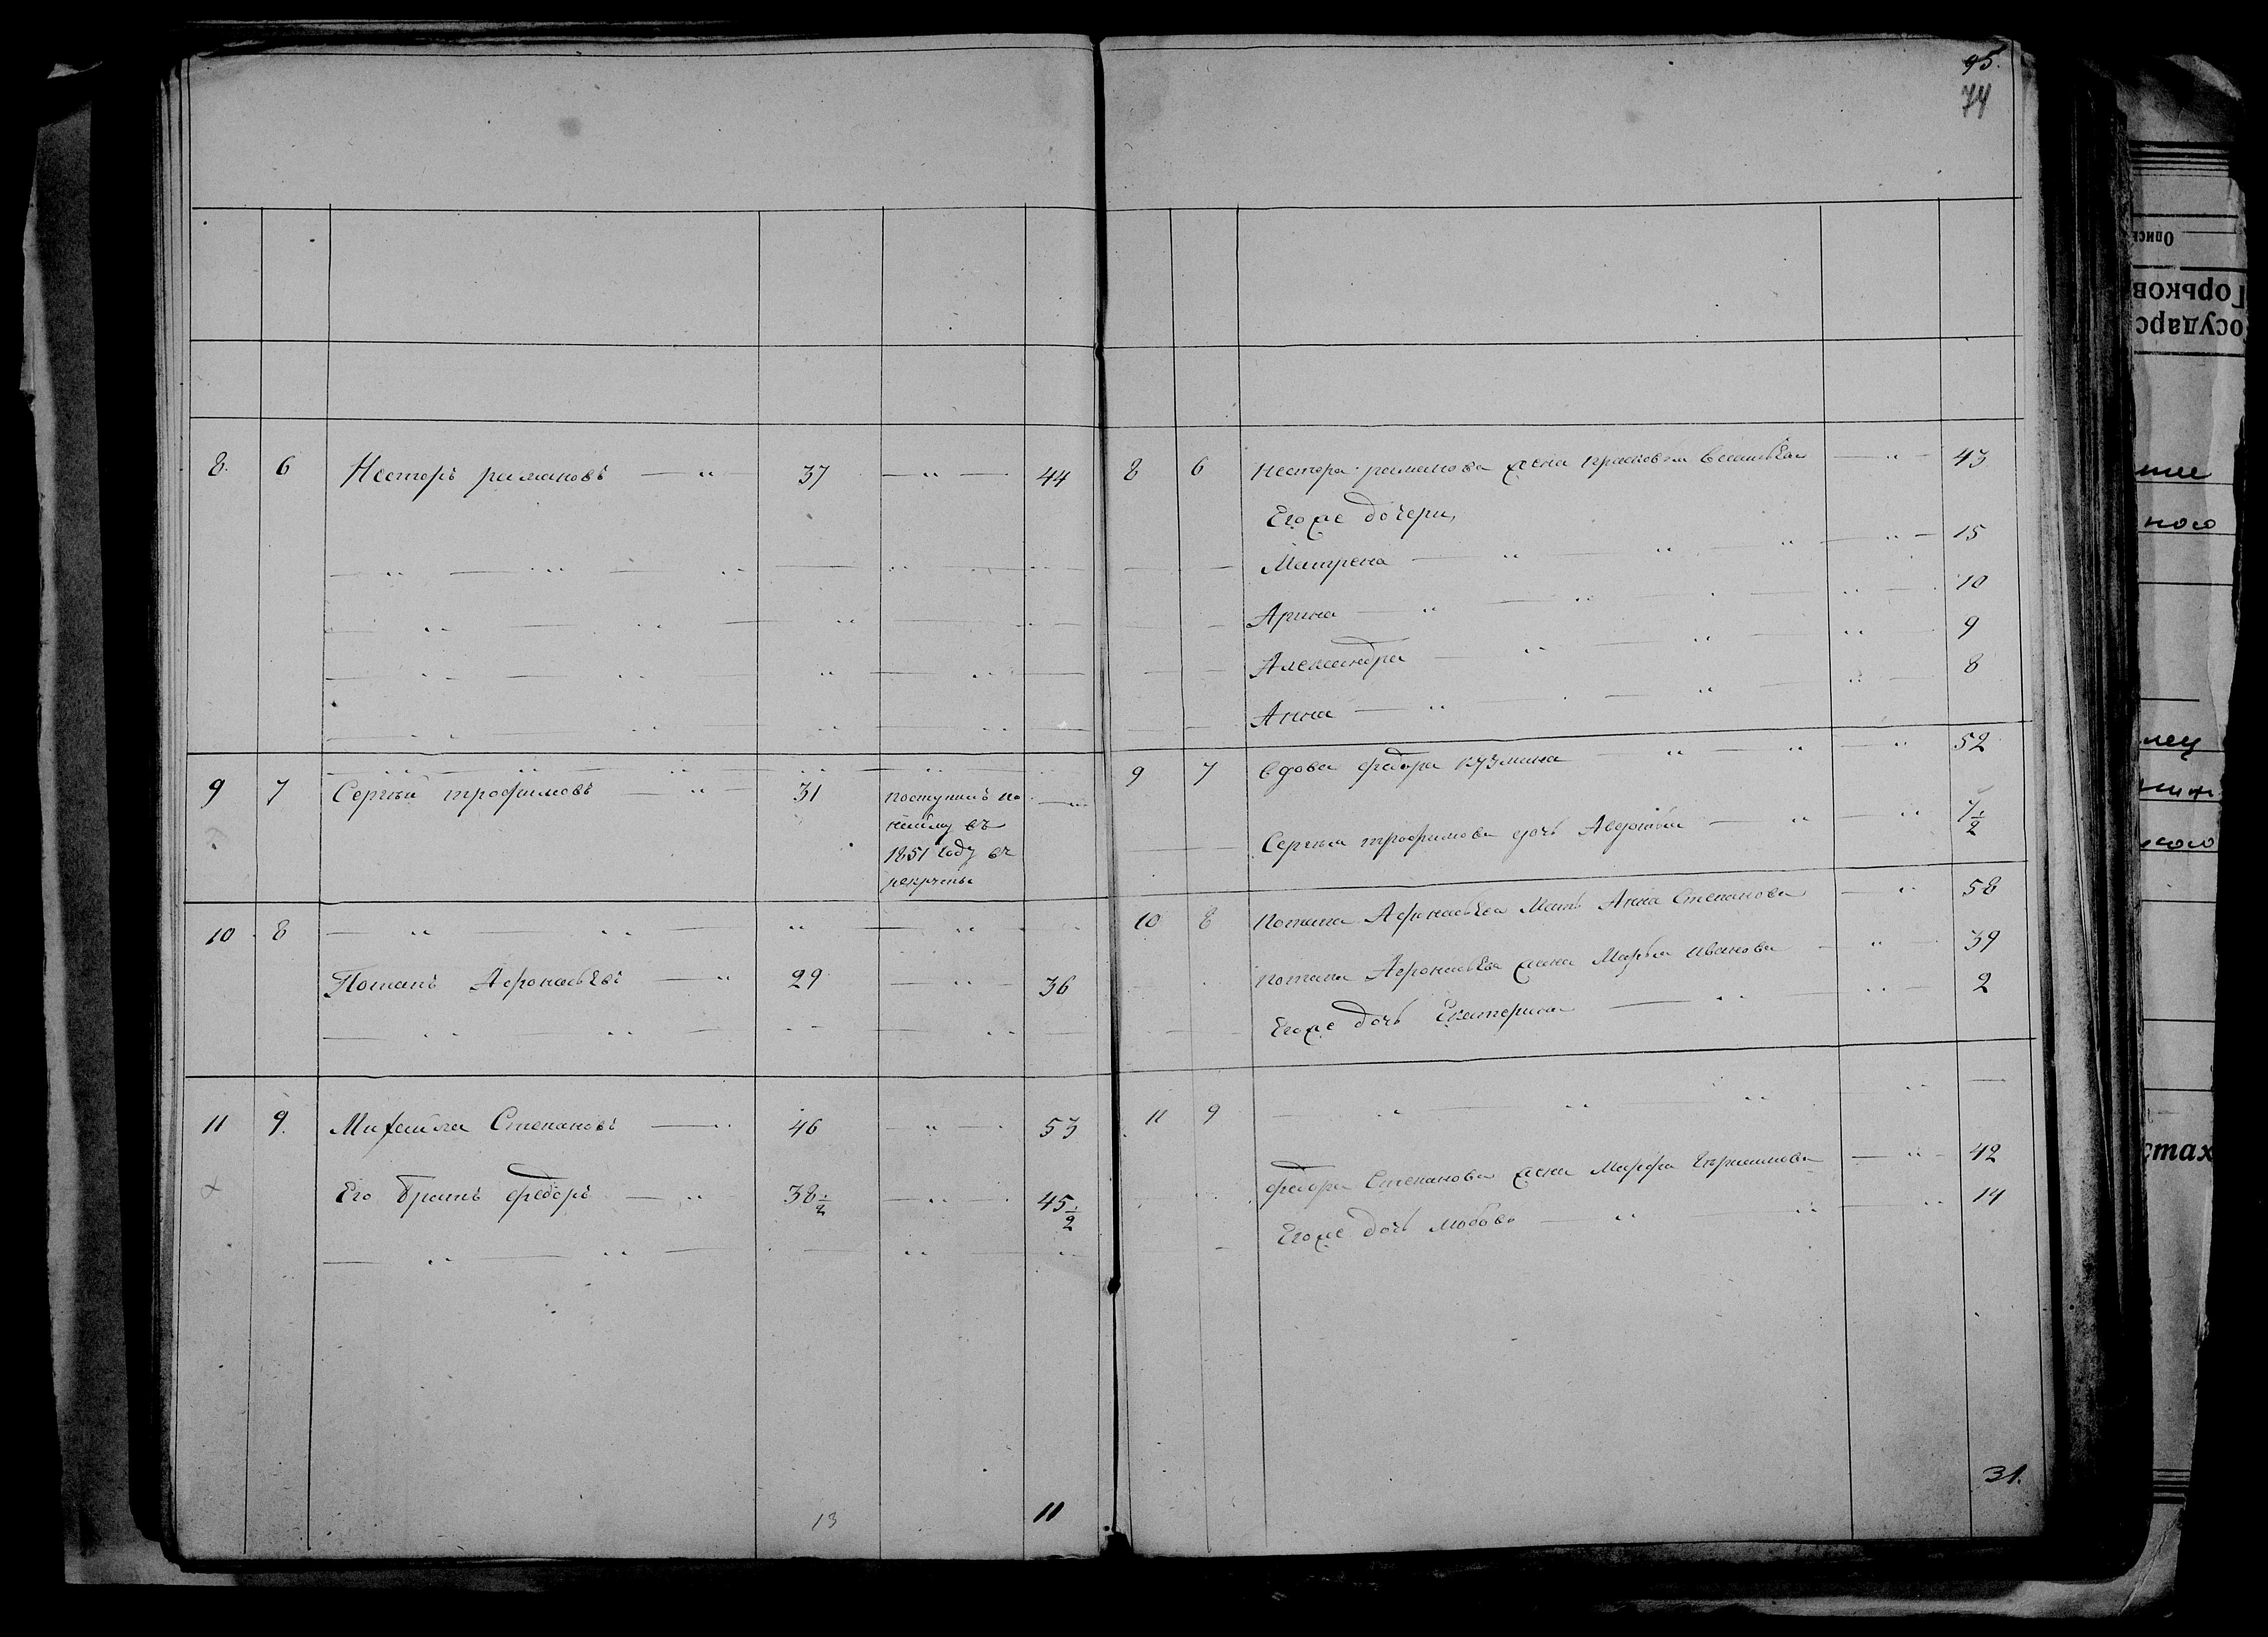 95.
74
8. 6 Несторъ романовъ — " 37 — " — 44
9 7 Сергѣй трофимовъ — " — 31 поступилъ по —
найму въ
1851 году въ
рекруты
10 8 — " — " — " — " —
Потапъ Афонасьевъ — " 29 — " — 36
11 9. Михайла Степановъ — " 46 — " 53
Его братъ федоръ — " 38 1/2 — " 45 1/2
13 11
8 6 Нестора романова жена прасковья васильева — " — 43
Егоже дочери,
Матрена — " — " — " — 15
Арина — " — " — " — 10
Александра — " — " — " 9
Анна — " — " — " — 8
9 7 вдова федора кузмина — " — " — " 52
Сергея трофимова дочь Авдотья — " — " 7 1/2
10 8 Потапа Афонасьева Мать Анна Степанова — " 58
потапа Афонасьева жена Марья иванова — " — 39
Егоже дочь Екатерина — " — " — 2
11 9 — " — " — " — " —
федора Степанова жена Марфа — " — 42
Егоже дочь любовь — " — " — " 14
31.
Опись
Горьков
осударс
стах